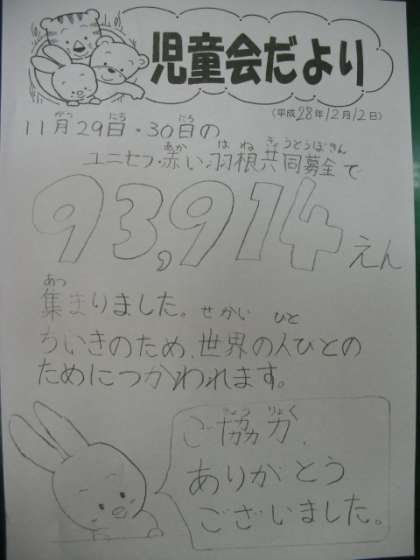 児童会だより
(平成28年12月12日)
11月29日・30日の
ユニセフ・赤い羽根共同募金で
93,914えん
集まりました。
ちいきのため、世界の人びとの
ためにつかわれます。
ご協力、
ありがとう
ございました。